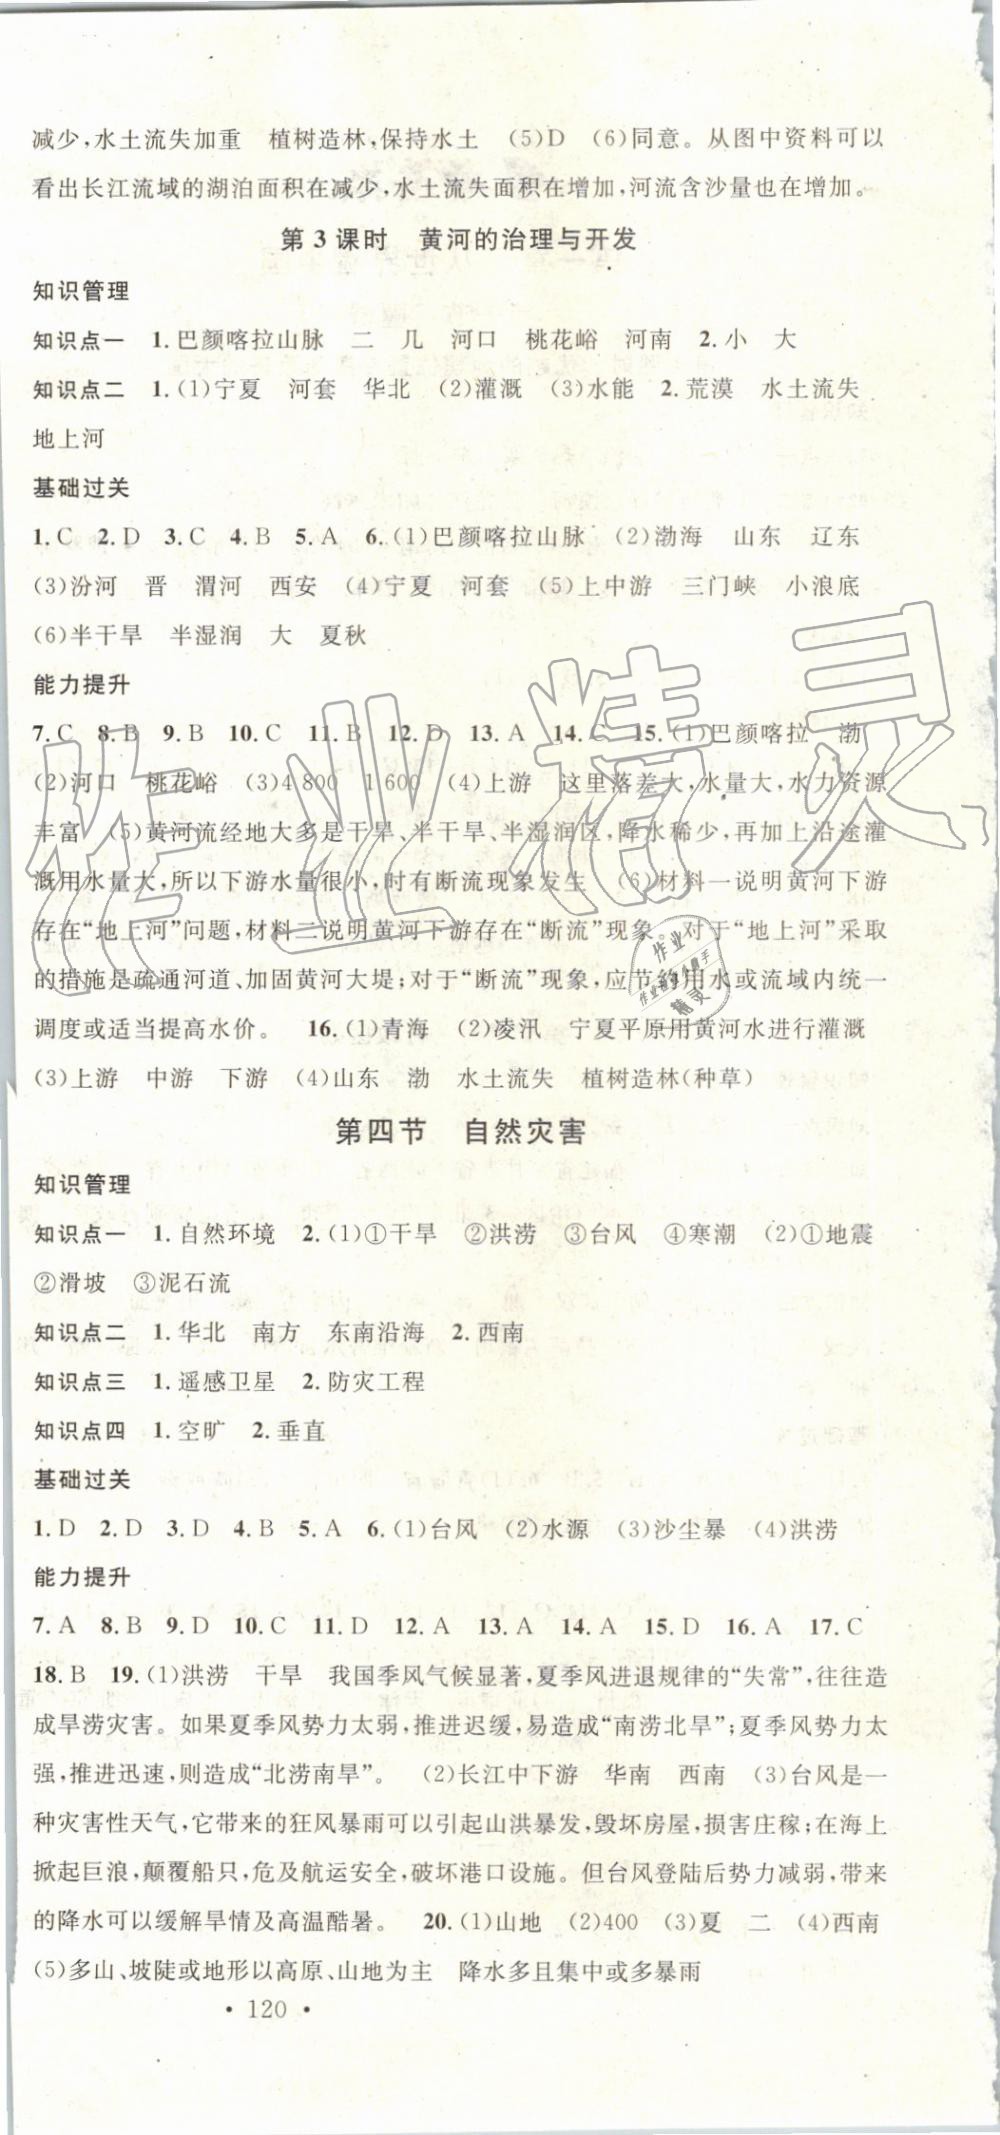 减少,水土流失加重　植树造林,保持水土　(5)D　(6)同意。从图中资料可以
看出长江流域的湖泊面积在减少,水土流失面积在增加,河流含沙量也在增加。
第3课时　黄河的治理与开发
知识管理
知识点一　1.巴颜喀拉山脉　二　几　河口　桃花峪　河南　2.小　大
知识点二　1.(1)宁夏　河套　华北　(2)灌溉　(3)水能　2.荒漠　水土流失
地上河
基础过关
1.C　2.D　3.C　4.B　5.A　6.(1)巴颜喀拉山脉　(2)渤海　山东　辽东
(3)汾河　晋　渭河　西安　(4)宁夏　河套　(5)上中游　三门峡　小浪底
(6)半干旱　半湿润　大　夏秋
能力提升
7.C　8.B　9.B　10.C　11.B　12.D　13.A　14.C　15.(1)巴颜喀拉　渤
(2)河口　桃花峪　(3)4 800　1 600　(4)上游　这里落差大,水量大,水力资源
丰富　(5)黄河流经地大多是干旱、半干旱、半湿润区,降水稀少,再加上沿途灌
溉用水量大,所以下游水量很小,时有断流现象发生　(6)材料一说明黄河下游
存在“地上河”问题,材料二说明黄河下游存在“断流”现象。对于“地上河”采取
的措施是疏通河道、加固黄河大堤;对于“断流”现象,应节约用水或流域内统一
调度或适当提高水价。　16.(1)青海　(2)凌汛　宁夏平原用黄河水进行灌溉
(3)上游　中游　下游　(4)山东　渤　水土流失　植树造林(种草)
第四节　自然灾害
知识管理
知识点一　1.自然环境　2.(1)①干旱　②洪涝　③台风　④寒潮　(2)①地震
②滑坡　③泥石流
知识点二　1.华北　南方　东南沿海　2.西南
知识点三　1.遥感卫星　2.防灾工程
知识点四　1.空旷　2.垂直
基础过关
1.D　2.D　3.D　4.B　5.A　6.(1)台风　(2)水源　(3)沙尘暴　(4)洪涝
能力提升
7.A　8.B　9.D　10.C　11.D　12.A　13.A　14.A　15.D　16.A　17.C
18.B　19.(1)洪涝　干旱　我国季风气候显著,夏季风进退规律的“失常”,往往造
成旱涝灾害。如果夏季风势力太弱,推进迟缓,易造成“南涝北旱”;夏季风势力太
强,推进迅速,则造成“北涝南旱”。　(2)长江中下游　华南　西南　(3)台风是一
种灾害性天气,它带来的狂风暴雨可以引起山洪暴发,毁坏房屋,损害庄稼;在海上
掀起巨浪,颠覆船只,危及航运安全,破坏港口设施。但台风登陆后势力减弱,带来
的降水可以缓解旱情及高温酷暑。　20.(1)山地　(2)400　(3)夏　二　(4)西南
(5)多山、坡陡或地形以高原、山地为主　降水多且集中或多暴雨
• 120 •
作业精灵